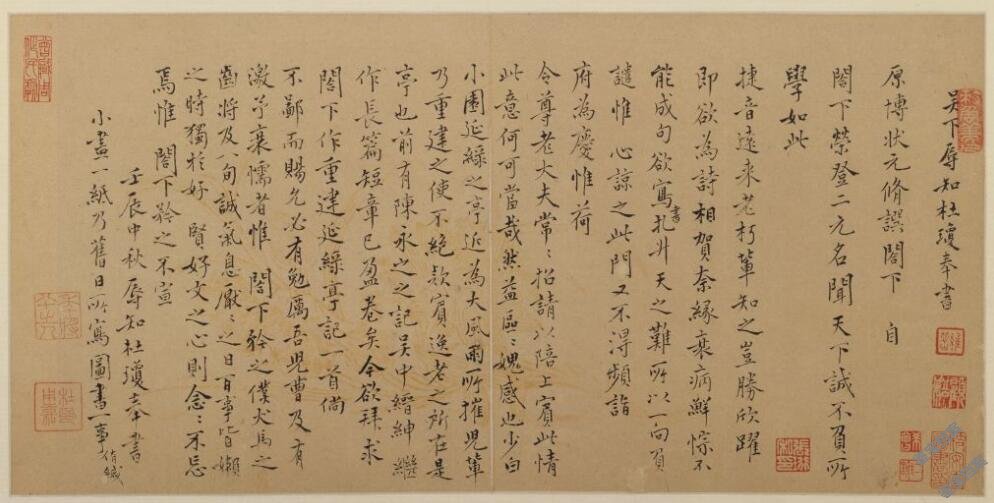 吳下辱知杜瓊奉書
原博狀元脩譔閣下 自
閣下榮登二元名聞天下誠不負所
學如此
捷音遠來老朽輩知之豈勝欣躍
即欲為詩相賀奈緣衰病鮮悰不
能成句欲寫書扎升天之難所以一向負
譴惟心諒之此門又不得頻詣
府為慶惟荷
令尊老大夫常〻招請以陪上賓此情
此意何可當哉然益區〻媿感也少白
小園延綠之亭近為大風雨所摧兒輩
乃重建之使不絕款賓逸老之所在是
亭也前有陳永之之記吳中縉紳繼
作長篇短章已盈卷矣今欲拜求
閣下作重建延綠亭記一首倘
不鄙而賜允必有勉厲吾兒曹及有
激于衰懦者惟 閣下矜之僕犬馬之
齒將及八旬誠氣息厭〻之日百事皆嬾
之時獨於好 賢好文之心則念〻不忘
焉惟 閣下矜之不宣
壬辰中秋辱知杜瓊奉書
小畫一紙乃舊日所寫圖書一事